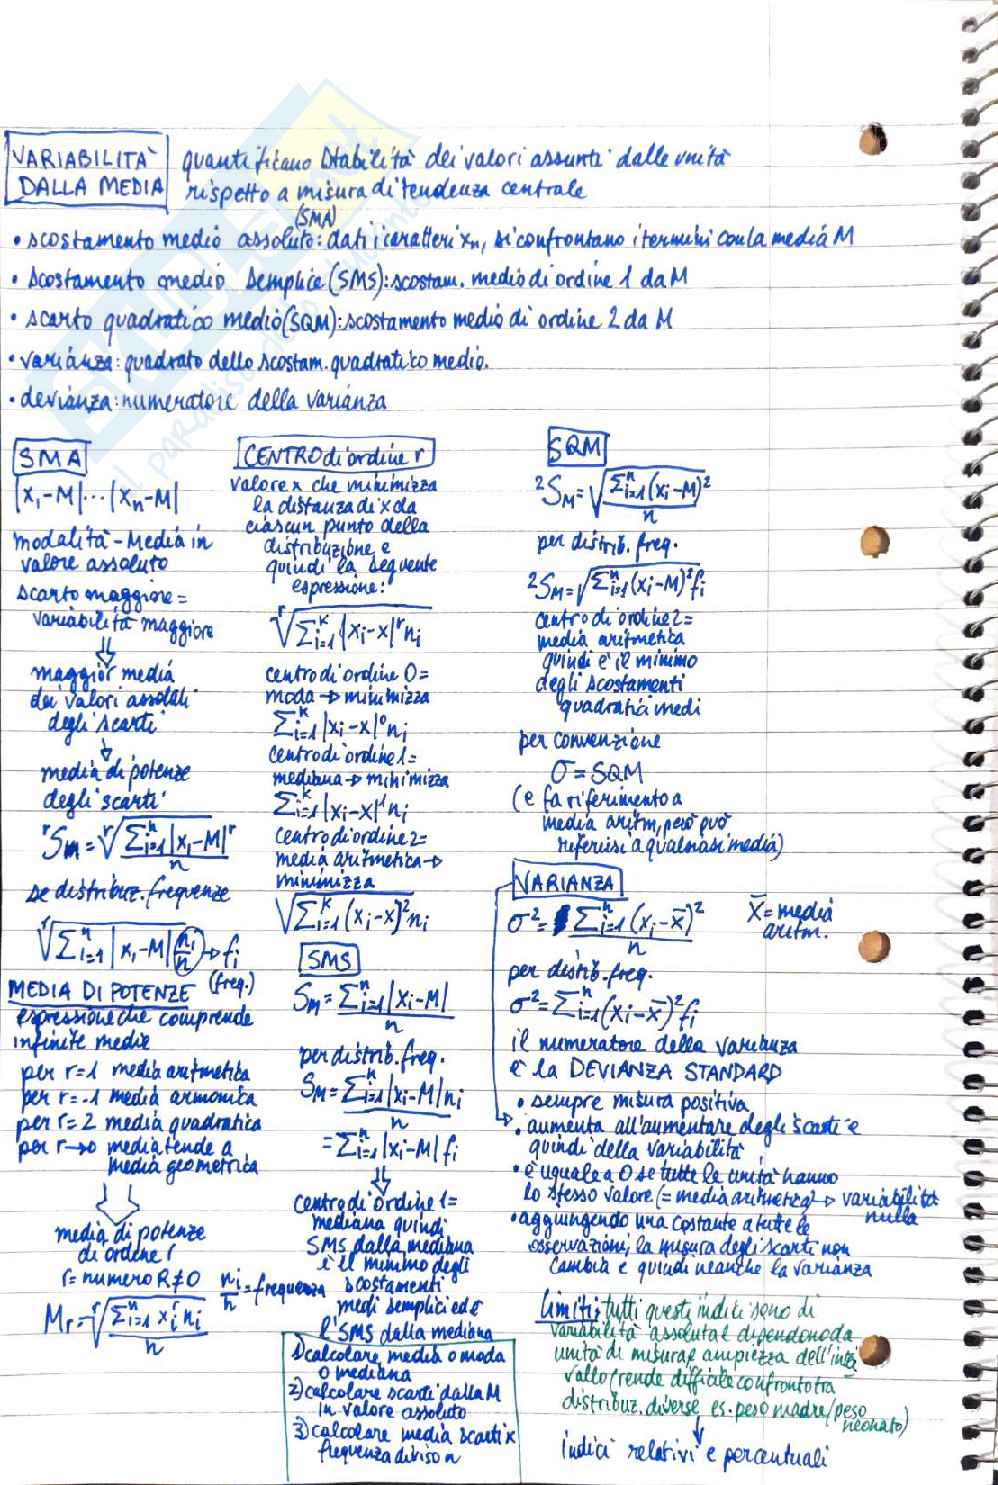 VARIABILITÀ
DALLA MEDIA
quantificano stabilità dei valori assunti dalle unità
rispetto a misura di tendenza centrale
(SMA)
• scostamento medio assoluto: dati i caratteri xn, si confrontano i termini con la media M
• scostamento medio semplice (SMS): scostam. medio di ordine 1 da M
• scarto quadratico medio (SQM): scostamento medio di ordine 2 da M
• varianza: quadrato dello scostam. quadratico medio.
• devianza: numeratore della varianza
SMA
|x₁-M|...|xn-M|
modalità - Media in
valore assoluto
scarto maggiore =
variabilità maggiore
⇓
maggior media
dei valori assoluti
degli scarti
↓
media di potenze
degli scarti
ʳSm = ʳ√(Σⁿi=1 |xi-M|ʳ / n)
se distribuz. frequenze
ʳ√(Σⁿi=1 |xi-M| ni/n) → fi
(freq.)
MEDIA DI POTENZE
espressione che comprende
infinite medie
per r=1 media aritmetica
per r=-1 media armonica
per r=2 media quadratica
per r→0 media tende a
media geometrica
⇓
media di potenze
di ordine r
r= numero R≠0
ni/n = frequenza
Mr = ʳ√(Σⁿi=1 xiʳ ni / n)
CENTRO di ordine r
valore x che minimizza
la distanza di x da
ciascun punto della
distribuzione e
quindi la seguente
espressione:
ʳ√(Σᵏi=1 |xi-x|ʳ ni)
centro di ordine 0=
moda → minimizza
Σᵏi=1 |xi-x|⁰ ni
centro di ordine 1=
mediana → minimizza
Σᵏi=1 |xi-x|¹ ni
centro di ordine 2=
media aritmetica →
minimizza
√(Σᵏi=1 (xi-x)² ni)
SMS
Sm = Σⁿi=1 |xi-M| / n
per distrib. freq.
Sm = Σⁿi=1 |xi-M| ni / n
= Σⁿi=1 |xi-M| fi
⇓
centro di ordine 1=
mediana quindi
SMS dalla mediana
è il minimo degli
scostamenti
medi semplici ed è
l'SMS dalla mediana
1) calcolare media o moda
o mediana
2) calcolare scarti dalla M
in valore assoluto
3) calcolare media scarti x
frequenza diviso n
SQM
²SM = √(Σⁿi=1 (xi-M)² / n)
per distrib. freq.
²SM = √(Σⁿi=1 (xi-M)² fi)
centro di ordine 2=
media aritmetica
quindi è il minimo
degli scostamenti
quadratici medi
per convenzione
σ = SQM
(e fa riferimento a
media aritm, però può
riferirsi a qualsiasi media)
VARIANZA
σ² = Σⁿi=1 (xi-x̄)² / n
X̄ = media
aritm.
per distrib. freq.
σ² = Σⁿi=1 (xi-x̄)² fi
il numeratore della varianza
è la DEVIANZA STANDARD
• sempre misura positiva
• aumenta all'aumentare degli scarti e
quindi della variabilità
• è uguale a 0 se tutte le unità hanno
lo stesso valore (= media aritmetica) → variabilità
nulla
• aggiungendo una costante a tutte le
osservazioni, la misura degli scarti non
cambia e quindi neanche la varianza
limiti: tutti questi indici sono di
variabilità assoluta e dipendono da
unità di misura e ampiezza dell'inter
vallo (rende difficile confronto tra
distribuz. diverse es. peso madre/peso
neonato)
↓
indici relativi e percentuali